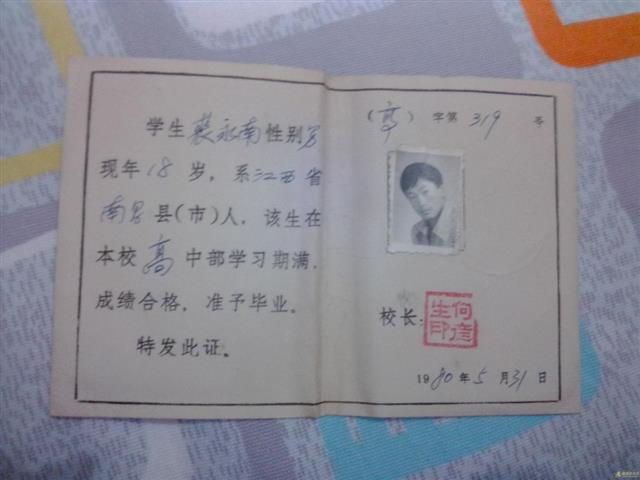 学生 永南性别男
现年18岁，系江西省
南昌县(市)人，该生在
本校高中部学习期满，
成绩合格，准予毕业。
特发此证。
(高) 字第 319 号
校长：
何
生印
1980年5月31日